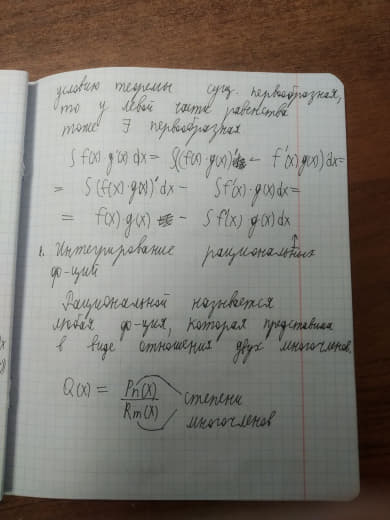 условию теоремы сущ. первообразная,
то у левой части равенства
тоже ∃ первообразная
∫ f(x) g'(x) dx = ∫((f(x)·g(x))' - f'(x) g(x)) dx =
= ∫(f(x)·g(x))' dx - ∫f'(x)·g(x) dx =
= f(x)·g(x) - ∫f'(x)·g(x) dx
1. Интегрирование рациональных
ф-ций
Рациональной называется
любая ф-ция, которая представима
в виде отношения двух многочленов.
Q(x) = Pn(x) / Rm(x) степени
многочленов